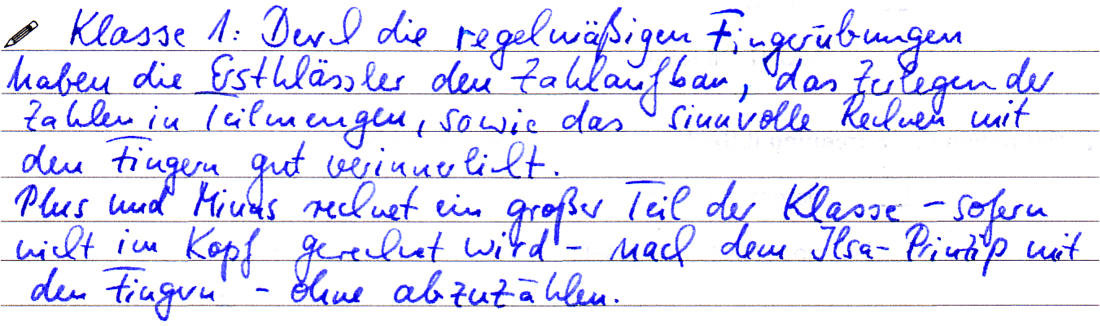 Klasse 1: Durch die regelmäßigen Fingerübungen
haben die Erstklässler den Zahlaufbau, das Zerlegen der
Zahlen in Teilmengen, sowie das sinnvolle Rechnen mit
den Fingern gut verinnerlicht.
Plus und Minus rechnet ein großer Teil der Klasse – sofern
nicht im Kopf gerechnet wird – nach dem Ilsa-Prinzip mit
den Fingern – ohne abzuzählen.